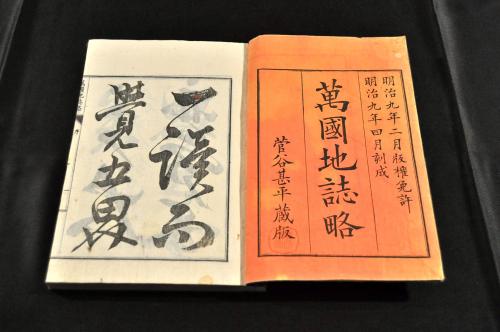 明治九年二月版權免許
明治九年四月刻成
萬國地誌略
菅谷甚平藏版
一讀而
覺五